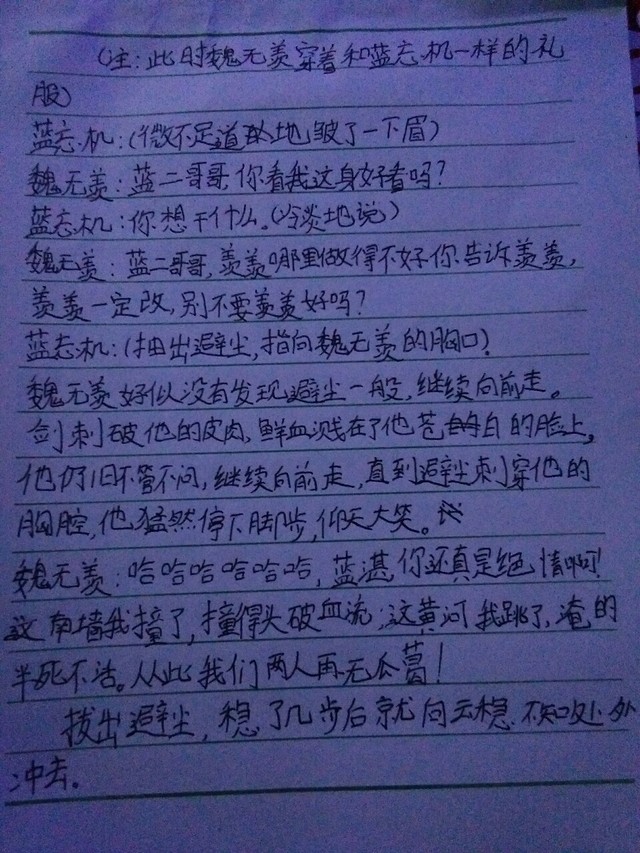 （注：此时魏无羡穿着和蓝忘机一样的礼
服）
蓝忘机：（微不足道地皱了一下眉）
魏无羡：蓝二哥哥你看我这身好看吗？
蓝忘机：你想干什么。（冷淡地说）
魏无羡：蓝二哥哥，羡羡哪里做得不好你告诉羡羡，
羡羡一定改，别不要羡羡好吗？
蓝忘机：（抽出避尘，指向魏无羡的胸口）
魏无羡好似没有发现避尘一般，继续向前走。
剑刺破他的皮肉，鲜血溅在了他苍白的脸上。
他仍旧不管不问，继续向前走，直到避尘刺穿他的
胸腔，他猛然停下脚步，仰天大笑。
魏无羡：哈哈哈哈哈哈，蓝湛，你还真是绝情啊！
这南墙我撞了，撞得头破血流；这黄河我跳了，淹的
半死不活。从此我们两人再无瓜葛！
拔出避尘，稳了几步后就向云稳不知处处
冲去。